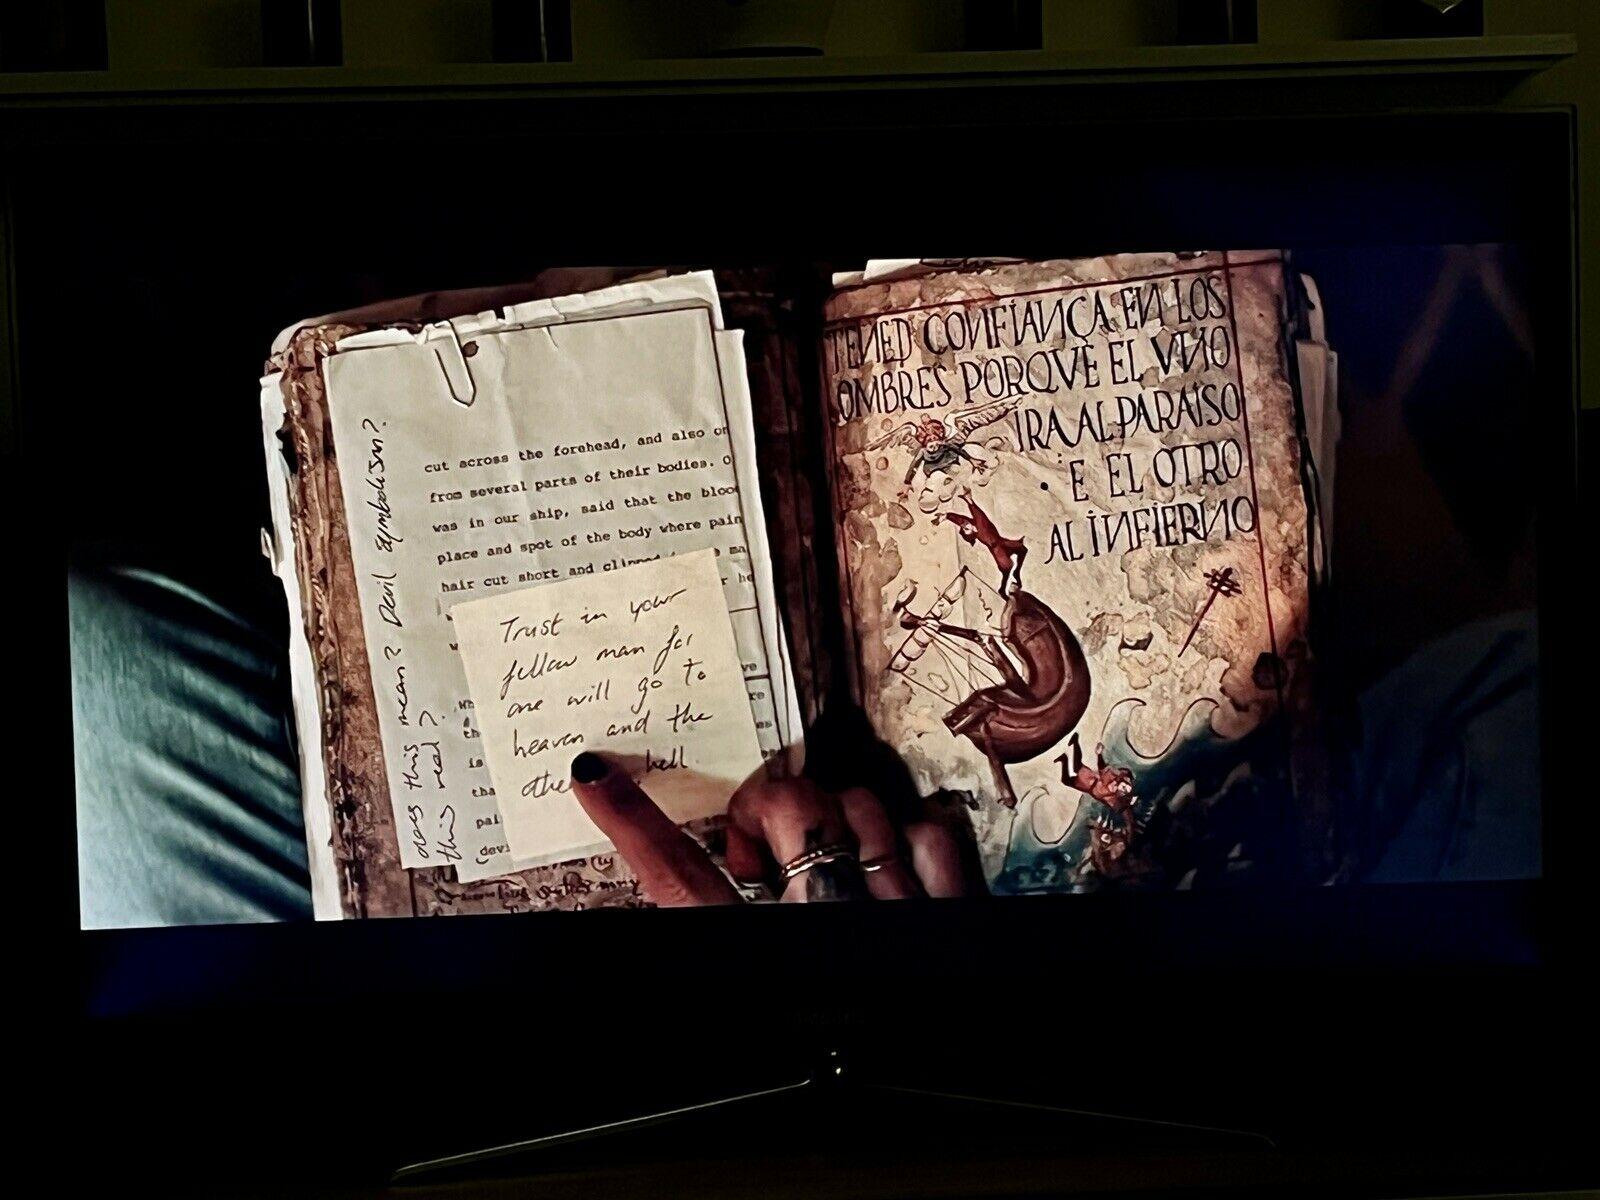 does this mean? Devil symbolism?
this real?
cut across the forehead, and also on
from several parts of their bodies. O
was in our ship, said that the blood
place and spot of the body where pain
hair cut short and
Trust in your
fellow man for
one will go to
heaven and the
hell
wh
th
is
tha
pai
(devi
ve
TENED CONFIANCA EN LOS
OMBRES PORQVE EL VNO
IRA AL PARAISO
E EL OTRO
AL INFIERNO